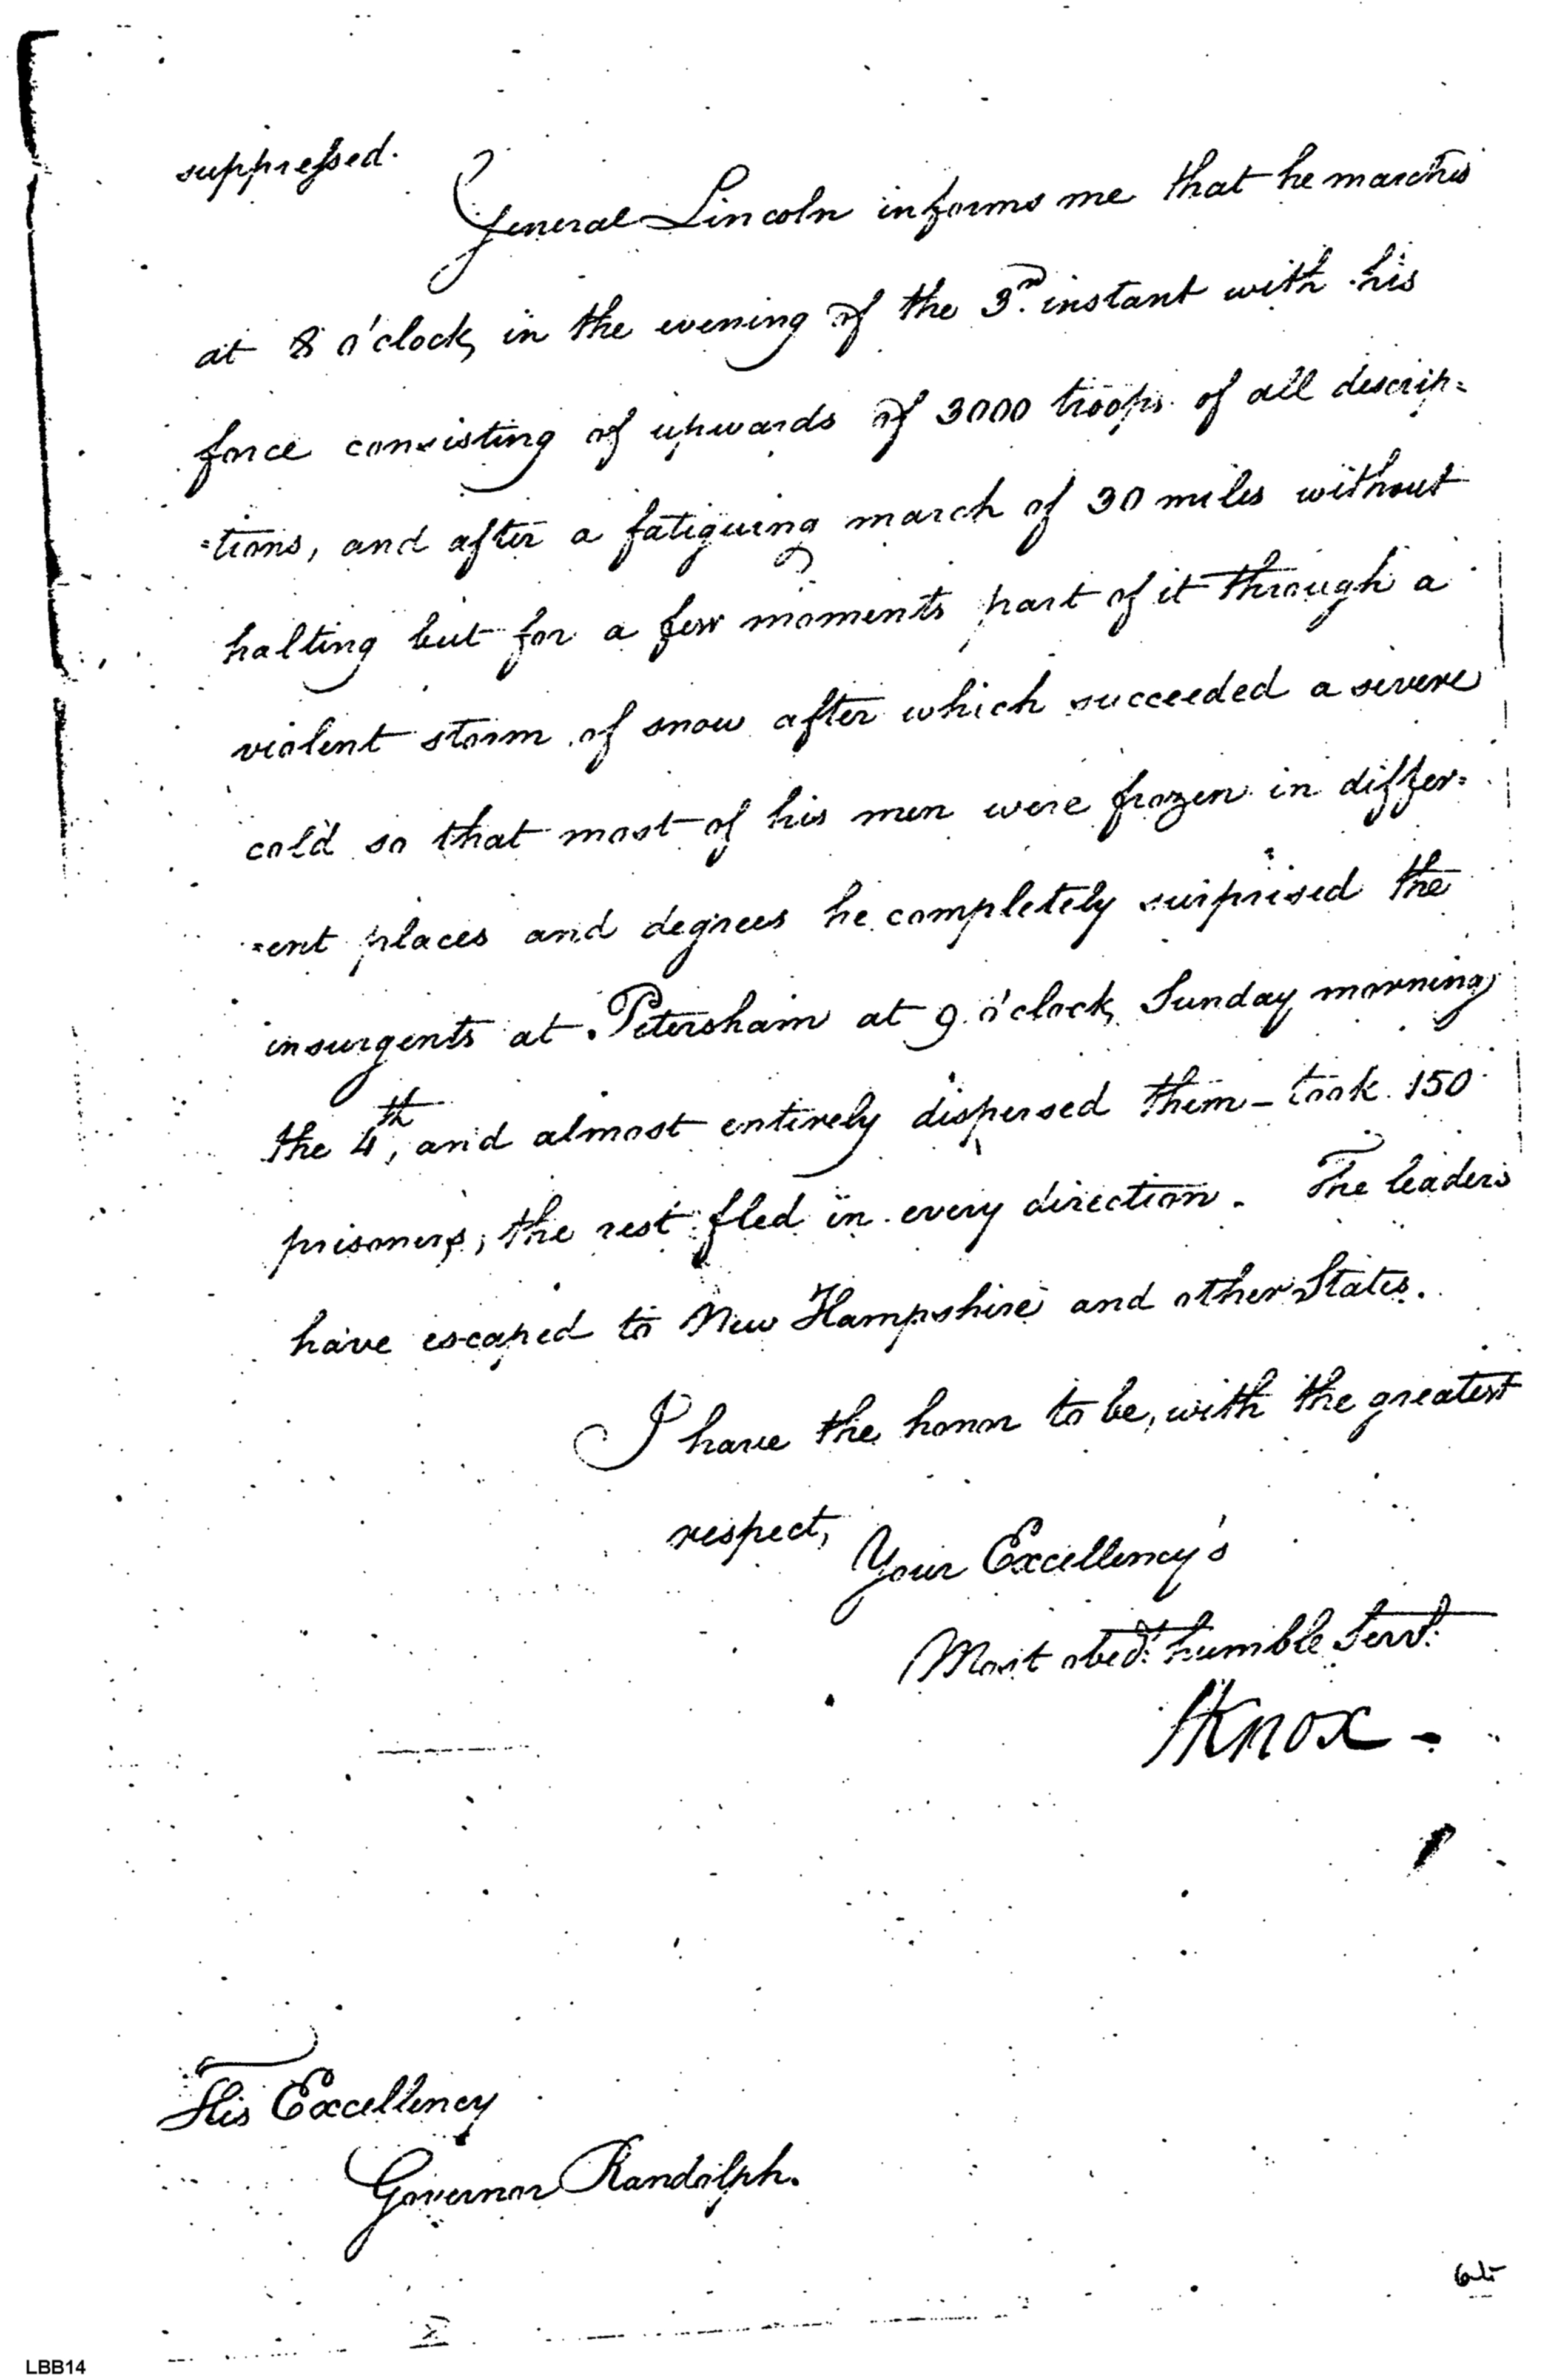 suppressed.
General Lincoln informs me that he marched
at 8 o'clock, in the evening of the 3.d instant with his
force consisting of upwards of 3000 troops of all descrip=
=tions, and after a fatiguing march of 30 miles without
halting but for a few moments part of it through a
violent storm of snow after which succeeded a severe
cold so that most of his men were frozen in differ=
=ent places and degrees he completely surprised the
insurgents at Petersham at 9 o'clock, Sunday morning
the 4th, and almost entirely dispersed them – took 150
prisoners, the rest fled in every direction. The leaders
have escaped to New Hampshire and other States.
I have the honor to be, with the greatest
respect,
Your Excellency's
Most obed.t humble Serv.t
HKnox -
His Excellency
Governor Randolph.
LBB14